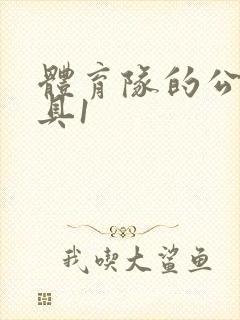 體育隊的公
具1
我喫大鯊鱼